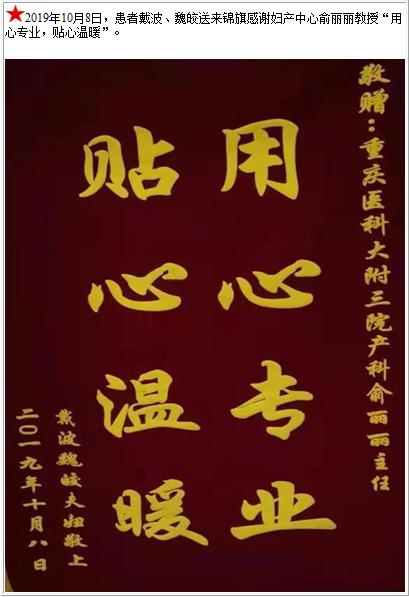 ★2019年10月8日，患者戴波、魏皎送来锦旗感谢妇产中心俞丽丽教授“用
心专业，贴心温暖”。
敬赠：重庆医科大附三院产科俞丽丽主任
用心专业
贴心温暖
戴波魏皎夫妇敬上
二〇一九年十月八日